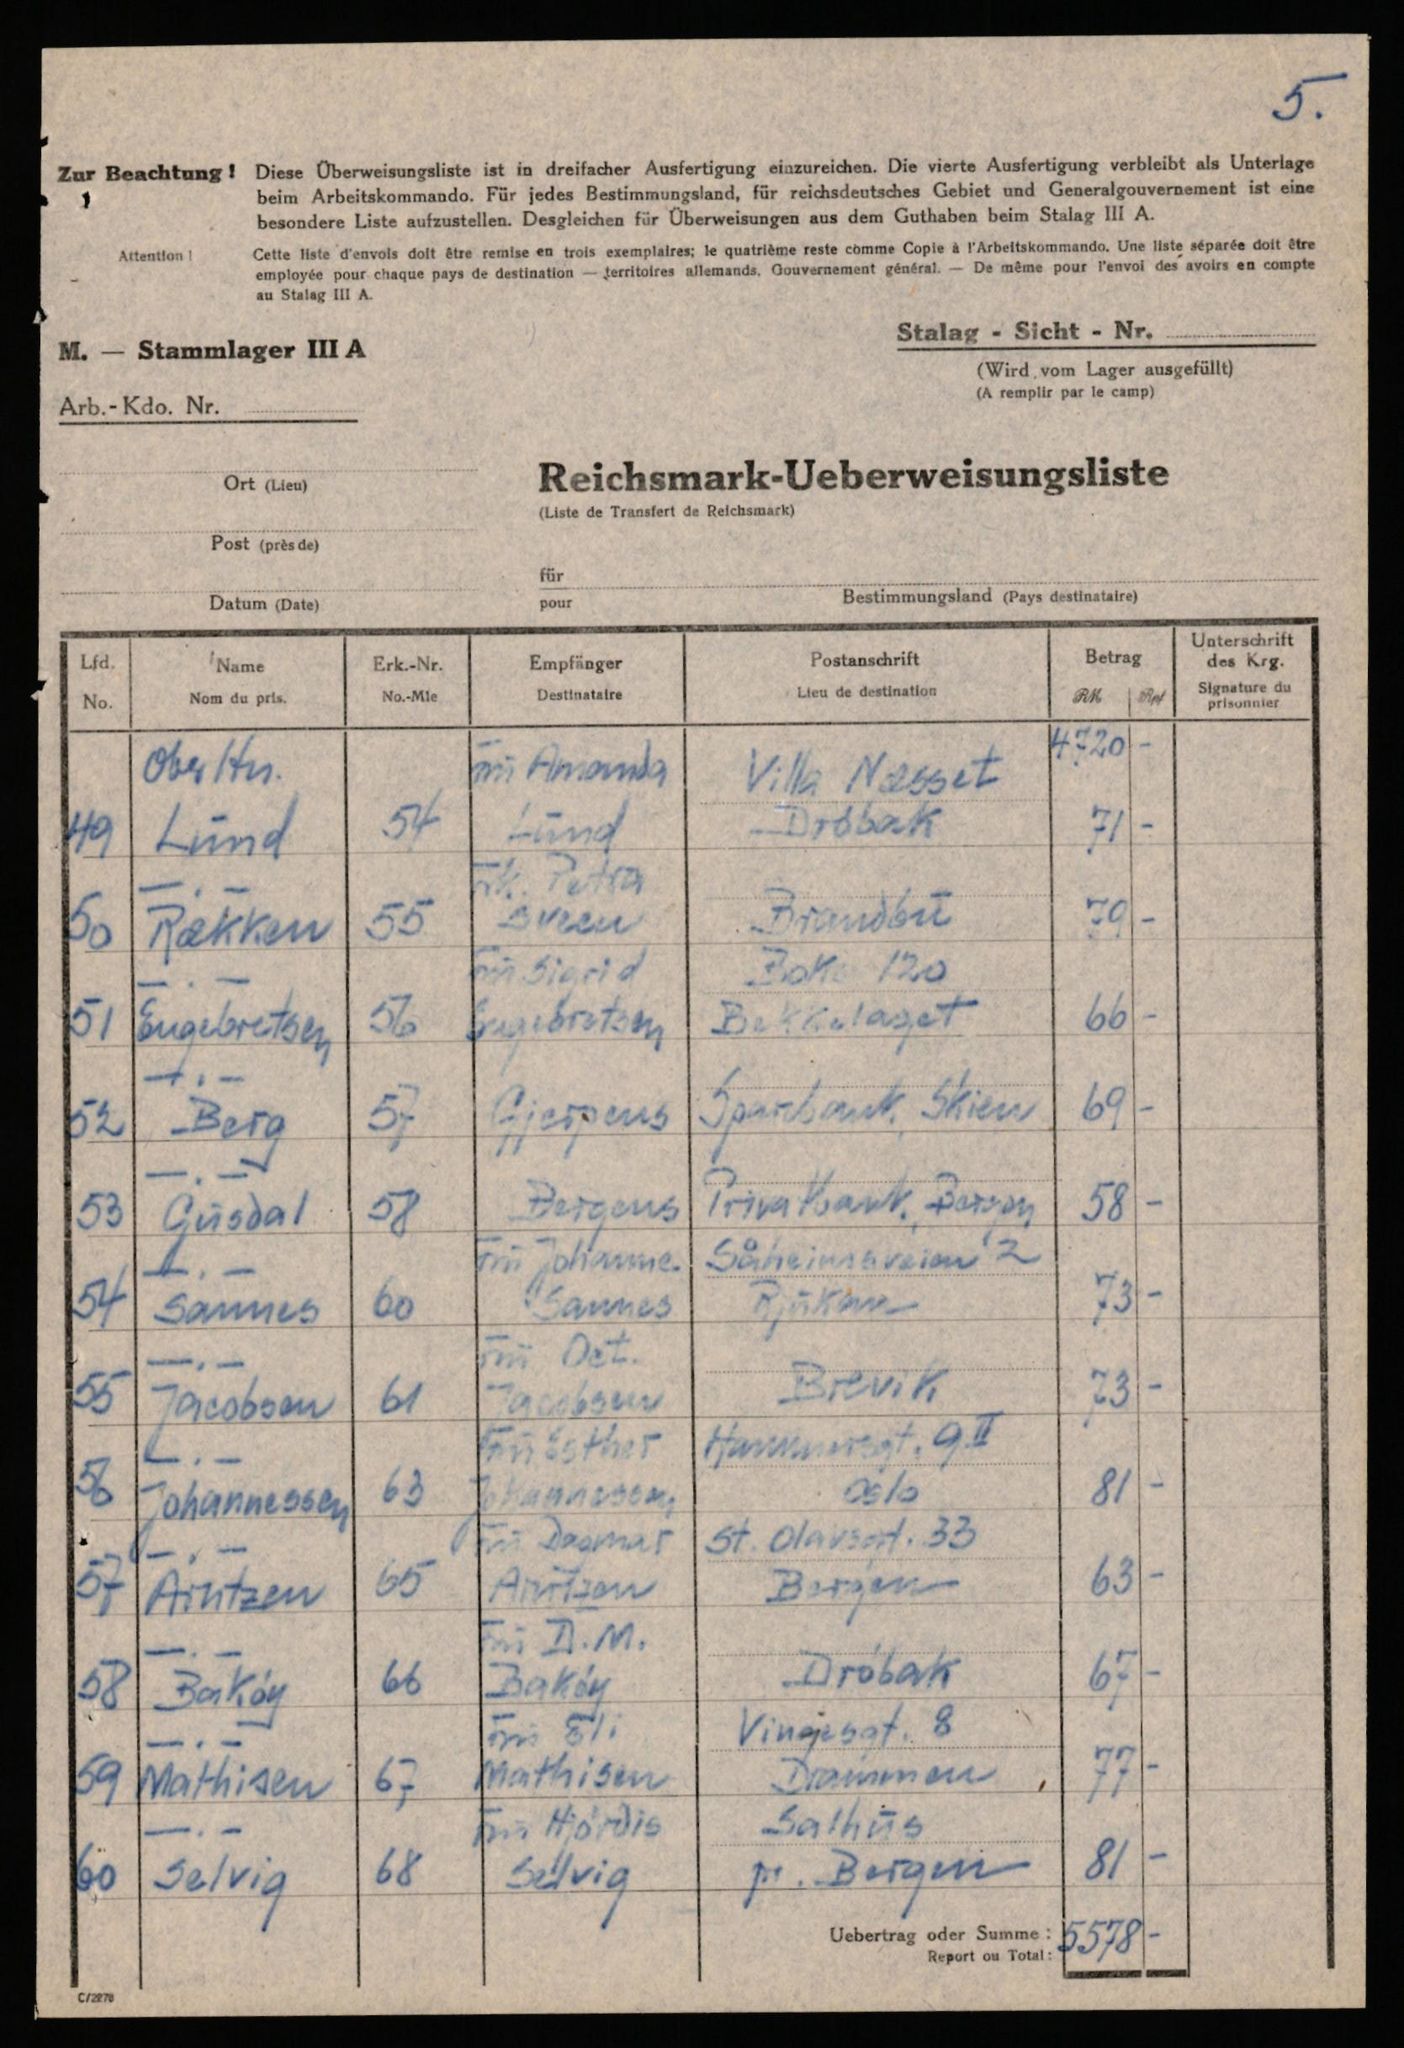 5.
Zur Beachtung! Diese Überweisungsliste ist in dreifacher Ausfertigung einzureichen. Die vierte Ausfertigung verbleibt als Unterlage
beim Arbeitskommando. Für jedes Bestimmungsland, für reichsdeutsches Gebiet und Generalgouvernement ist eine
besondere Liste aufzustellen. Desgleichen für Überweisungen aus dem Guthaben beim Stalag III A.
Attention! Cette liste d'envois doit être remise en trois exemplaires; le quatrième reste comme Copie à l'Arbeitskommando. Une liste séparée doit être
employée pour chaque pays de destination — territoires allemands, Gouvernement général. — De même pour l'envoi des avoirs en compte
au Stalag III A.
Stalag - Sicht - Nr.
(Wird vom Lager ausgefüllt)
(A remplir par le camp)
M. — Stammlager III A
Arb.-Kdo. Nr.
Ort (Lieu)
Post (près de)
Datum (Date)
Reichsmark-Ueberweisungsliste
(Liste de Transfert de Reichsmark)
für
pour
Bestimmungsland (Pays destinataire)
Lfd. Name Erk.-Nr. Empfänger Postanschrift Betrag Unterschrift des Krg.
No. Nom du pris. No.-Mle Destinataire Lieu de destination RM Rpf Signature du prisonnier
Oberltn. Frü Amanda Villa Næsset 4720 -
49 Lünd 54 Lünd Dröbak 71 -
— . — Frk. Petra
50 Rækken 55 Sveen Brandbü 79 -
— . — Frü Sigrid Boks 120
51 Engebretsen 56 Engebretsen Bekkelaget 66 -
— . —
52 Berg 57 Gjerpens Sparebank, Skien 69 -
— . —
53 Güsdal 58 Bergens Privatbank, Bergen 58 -
— . — Frü Johanne Såheimsveien 2
54 Sannes 60 Sannes Rjükan 73 -
— . — Frü Oct.
55 Jacobsen 61 Jacobsen Brevik 73 -
— . — Frü Esther Hammersgt. 9 II
56 Johannessen 63 Johannessen Oslo 81 -
— . — Frü Dagmar St. Olavsgt. 33
57 Arntzen 65 Arntzen Bergen 63 -
— . — Frü D. M.
58 Baköy 66 Baköy Dröbak 67 -
— . — Frü Eli Vingesgt. 8
59 Mathisen 67 Mathisen Drammen 77 -
— . — Frü Hjördis Salhüs
60 Selvig 68 Selvig pr. Bergen 81 -
Uebertrag oder Summe: 5578 -
Report ou Total:
C/2278